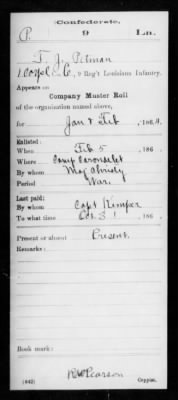 Confederate.
P. 9 La.
T. J. Pitman
1 Corpl Co. C, 9 Reg't Louisiana Infantry.
Appears on
Company Muster Roll
of the organization named above,
for Jan & Feb, 186
Enlisted:
When Feb 5, 186
Where Camp Carondelet
By whom Maj
Period War
Last paid:
By whom Capt Kimper
To what time Oct 31, 186
Present or absent Present
Remarks:
Book mark:
(642) R W Pearson
Copyist.